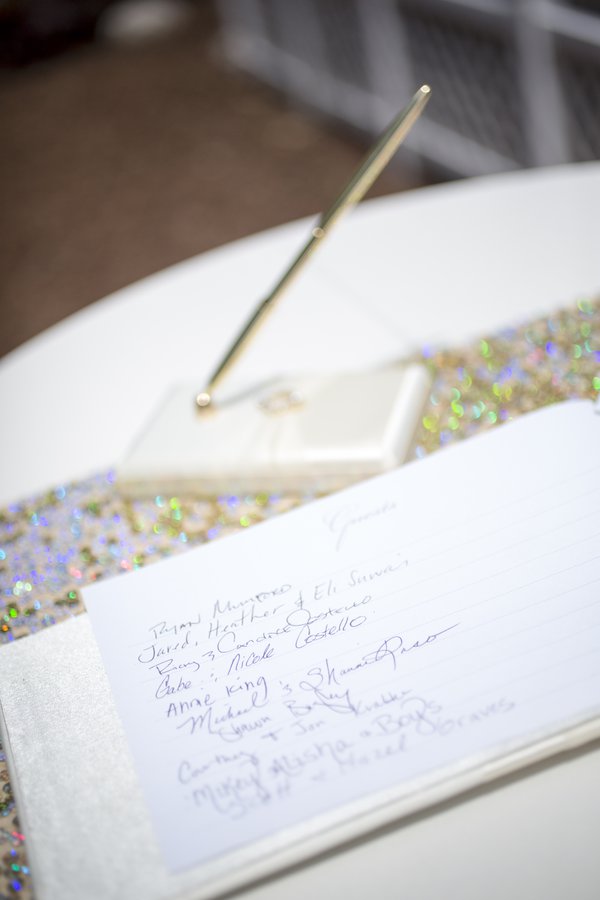 Guests
Ryan Mumford
Jared, Heather & Eli
Ray & Candice Costello
Gabe & Nicole Costello
Annie King
Michael & Shannie Paso
Shawn
Courtney & Jon Krabbe
Mikey Alisha & Boys
Scott & Hazel Graves